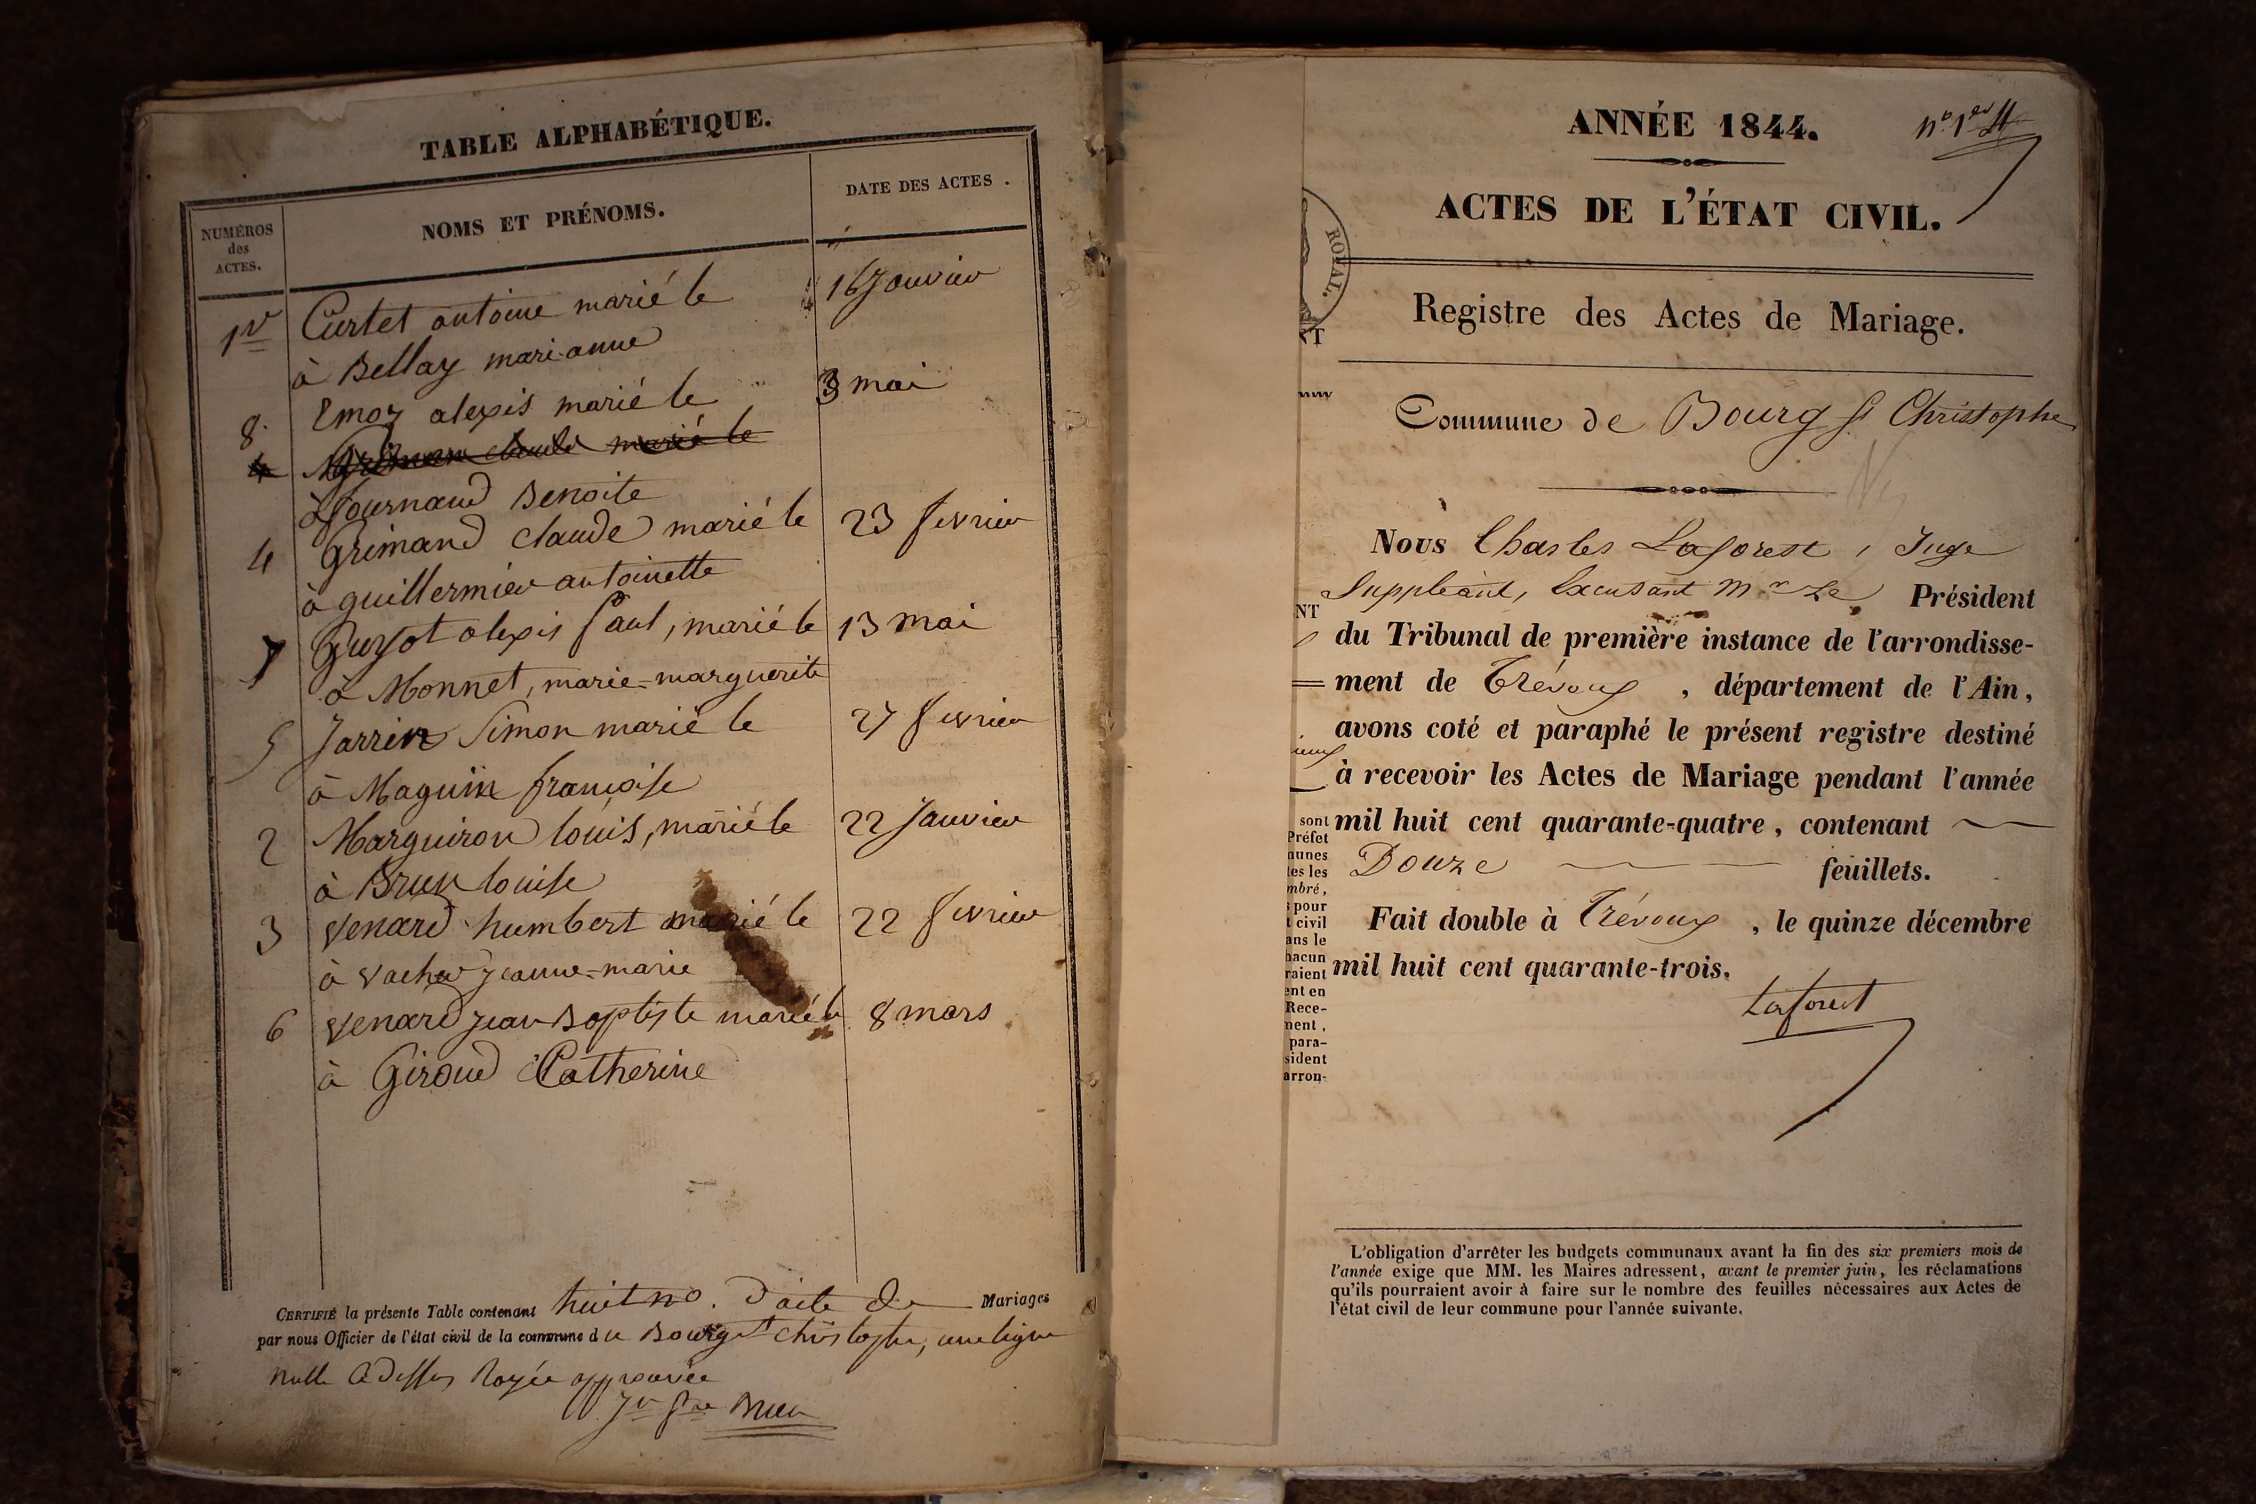 TABLE ALPHABÉTIQUE.
NUMÉROS
des
ACTES.
NOMS ET PRÉNOMS.
DATE DES ACTES.
1er Curtet antoine marié le 16 Janvier
à Bellay marianne
8. Emoz alexis marié le 3 mai
4 claude marié le
à Journaud Benoite
4 Grimand Claude marié le 23 fevrier
à guillermier antoinette
7 Guyot alexis Paul, marié le 13 mai
à Monnet, marie=marguerite
5 Jarrin Simon marié le 27 fevrier
à Maguin françoise
2 Marguiron louis, marié le 22 Janvier
à Brun louise
3 Venard humbert marié le 22 fevrier
à Vacher jeanne=marie
6 Venard jean Baptiste marié le 8 mars
à Giroud Catherine
CERTIFIÉ la présente Table contenant huit no. d'acte de Mariages
par nous Officier de l'état civil de la commune de Bourg St Christophe, une ligne
nulle Rayée approuvée
ANNÉE 1844.
no 1er
ACTES DE L'ÉTAT CIVIL.
ROYAL.
NT
Registre des Actes de Mariage.
Commune de Bourg St Christophe
Nous Charles Laforest, Juge
Suppléant, Excusant Mr Le Président
NT
du Tribunal de première instance de l'arrondisse-
ment de Trévoux, département de l'Ain,
avons coté et paraphé le présent registre destiné
à recevoir les Actes de Mariage pendant l'année
mil huit cent quarante-quatre, contenant
Douze feuillets.
Fait double à Trévoux, le quinze décembre
mil huit cent quarante-trois.
Laforest
sont
Préfet
nunes
tes les
mbré,
s pour
t civil
ans le
hacun
raient
ent en
Rece-
nent,
para-
sident
arron-
L'obligation d'arrêter les budgets communaux avant la fin des six premiers mois de
l'année exige que MM. les Maires adressent, avant le premier juin, les réclamations
qu'ils pourraient avoir à faire sur le nombre des feuilles nécessaires aux Actes de
l'état civil de leur commune pour l'année suivante.